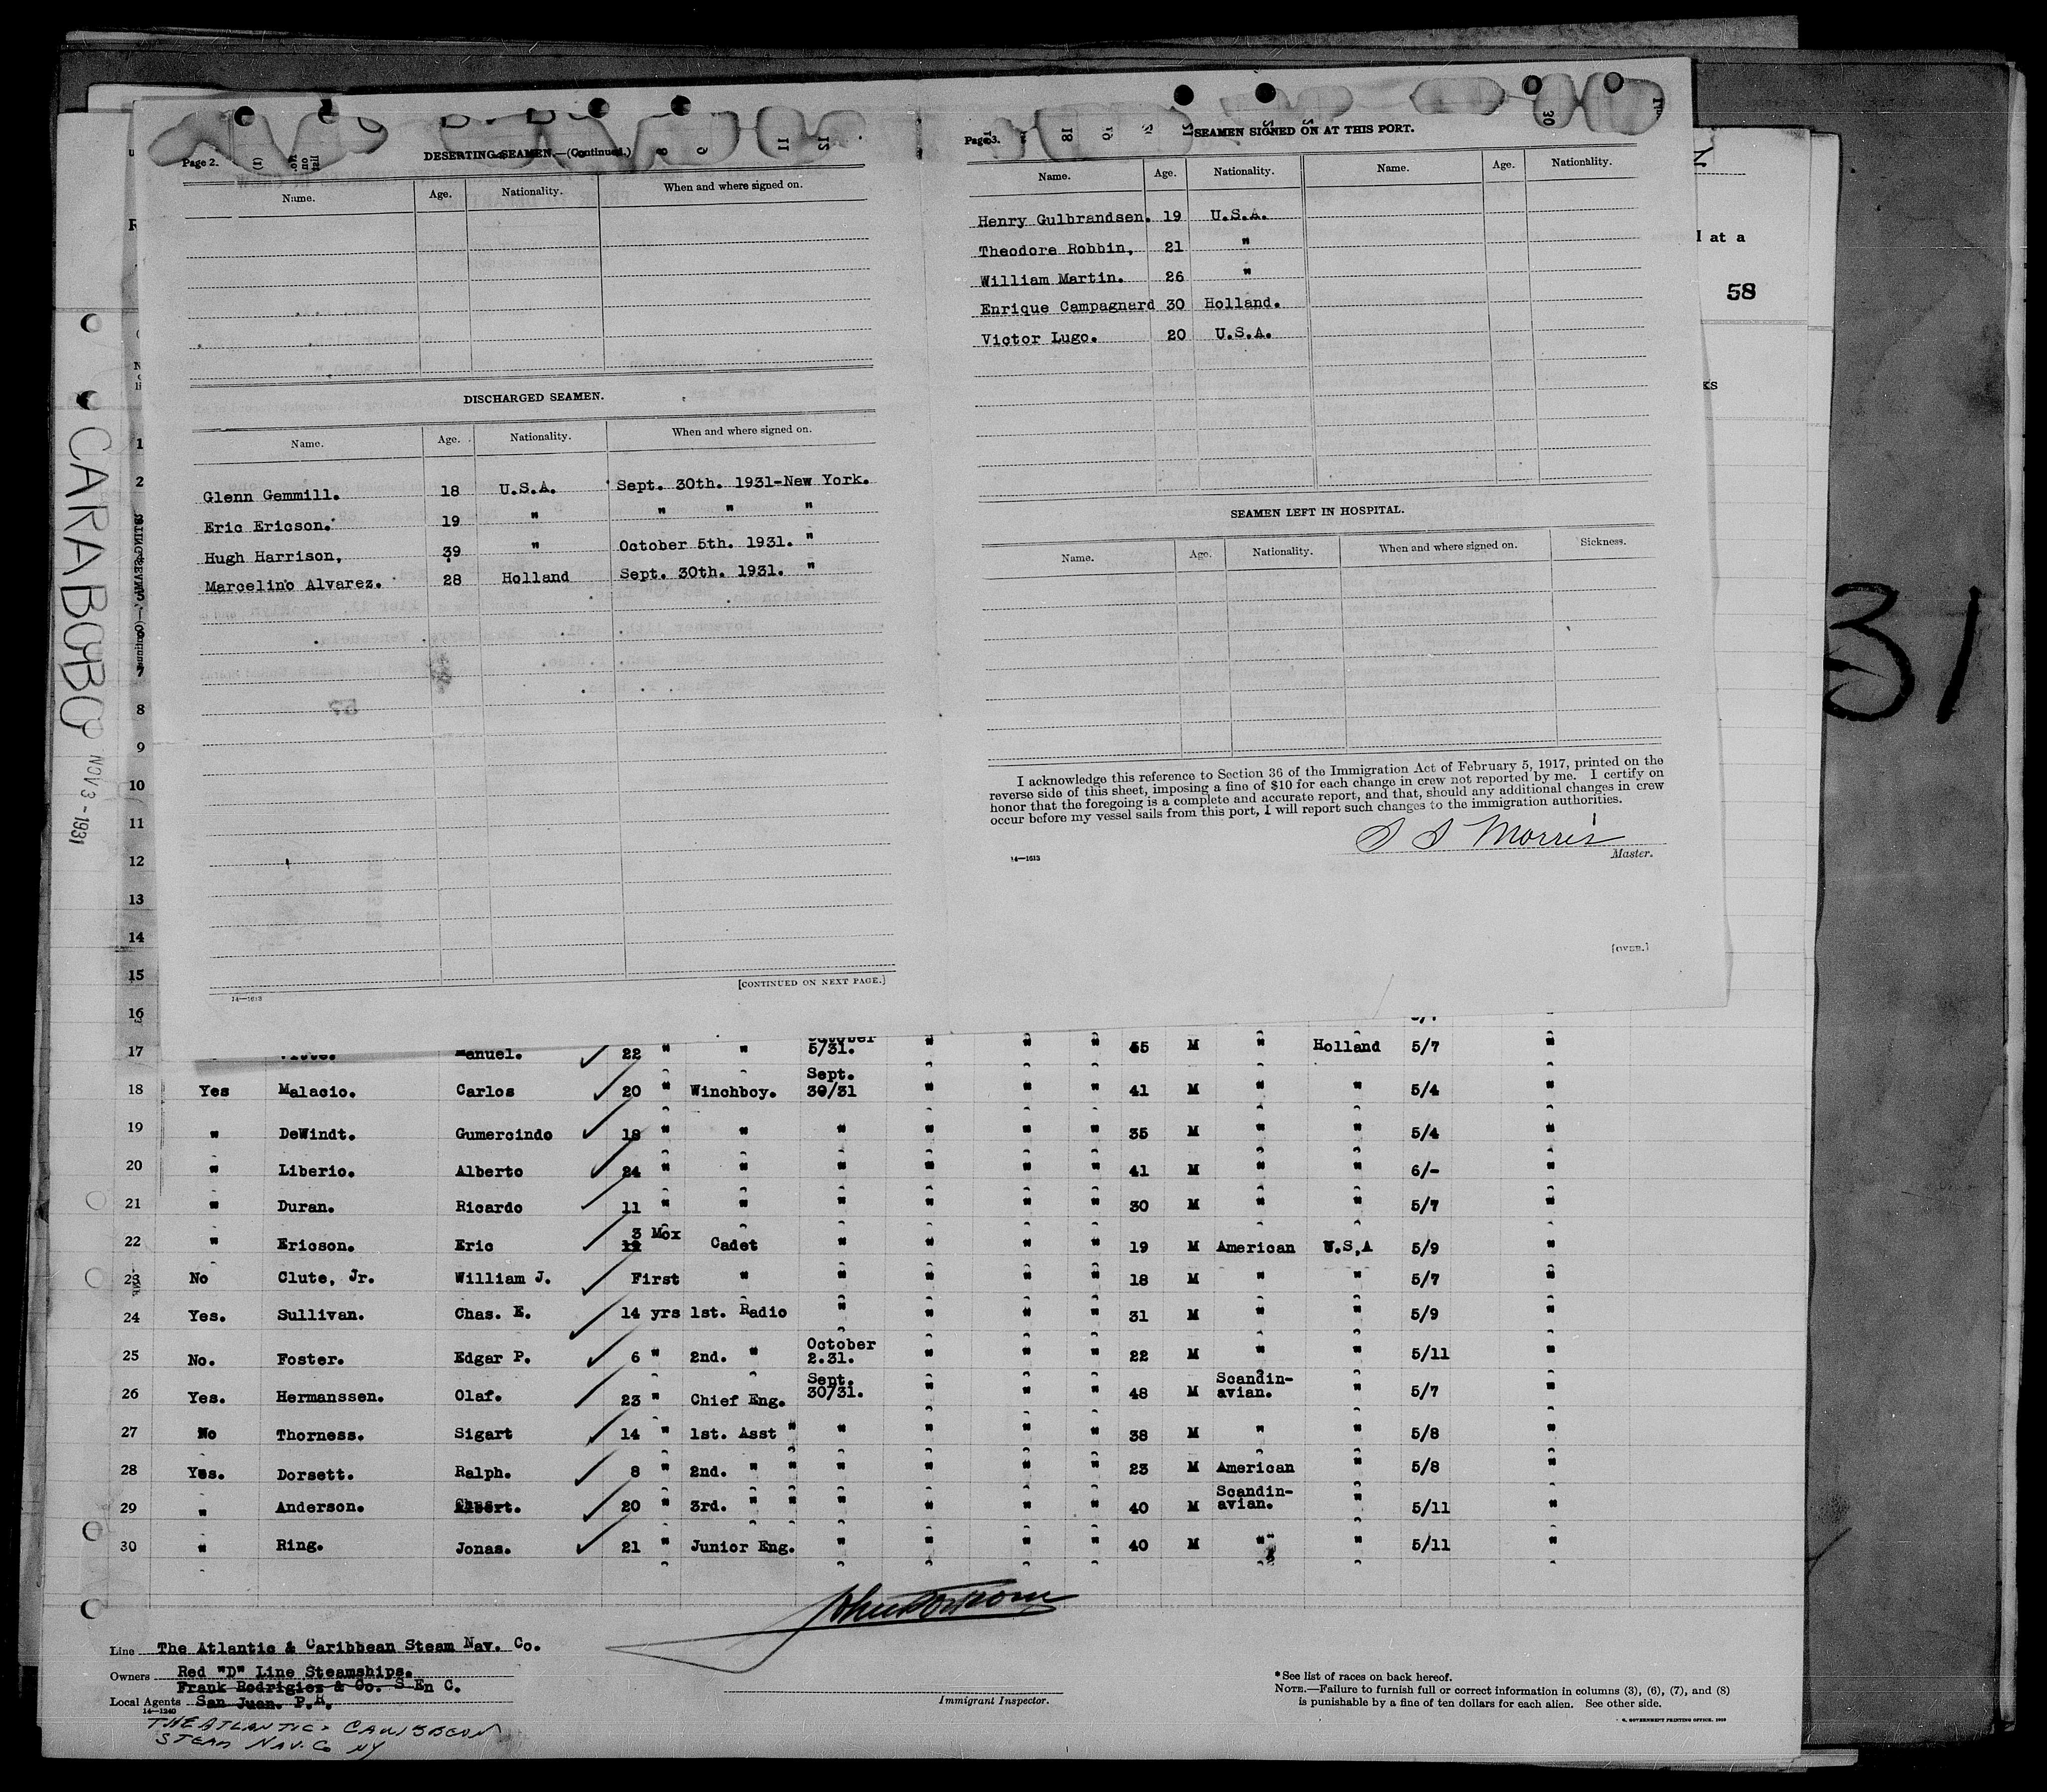 Page 2.
DESERTING SEAMEN.—(Continued.)
Name. Age. Nationality. When and where signed on.
DISCHARGED SEAMEN.
Name. Age. Nationality. When and where signed on.
Glenn Gemmill. 18 U.S.A. Sept. 30th. 1931-New York.
Eric Ericson. 19 " " " "
Hugh Harrison, 39 " October 5th. 1931. "
Marcelino Alvarez. 28 Holland Sept. 30th. 1931. "
[CONTINUED ON NEXT PAGE.]
14—1613
Page 3.
SEAMEN SIGNED ON AT THIS PORT.
Name. Age. Nationality. Name. Age. Nationality.
Henry Gulbrandsen. 19 U.S.A.
Theodore Robbin, 21 "
William Martin. 26 "
Enrique Campagnard 30 Holland.
Victor Lugo. 20 U.S.A.
SEAMEN LEFT IN HOSPITAL.
Name. Age. Nationality. When and where signed on. Sickness.
I acknowledge this reference to Section 36 of the Immigration Act of February 5, 1917, printed on the
reverse side of this sheet, imposing a fine of $10 for each change in crew not reported by me. I certify on
honor that the foregoing is a complete and accurate report, and that, should any additional changes in crew
occur before my vessel sails from this port, I will report such changes to the immigration authorities.
S S Morris
Master.
14—1613
[OVER.]
at a
58
31
CARABOBO NOV 3 - 1931
1
2
7
8
9
10
11
12
13
14
15
16
17 Manuel. 22 " " October 5/31. " " " 55 M " Holland 5/7 "
18 Yes Malacio. Carlos 20 " Winchboy. Sept. 30/31 " " " 41 M " " 5/4 "
19 " DeWindt. Gumercindo 18 " " " " " " 35 M " " 5/4 "
20 " Liberio. Alberto 24 " " " " " " 41 M " " 6/- "
21 " Duran. Ricardo 11 " " " " " " 30 M " " 5/7 "
22 " Ericson. Eric 3 Mox Cadet " " " " 19 M American U.S.A 5/9 "
23 No Clute, Jr. William J. First " " " " " 18 M " " 5/7 "
24 Yes. Sullivan. Chas. E. 14 yrs 1st. Radio " " " " 31 M " " 5/9 "
25 No. Foster. Edgar P. 6 " 2nd. " October 2.31. " " " 22 M " " 5/11 "
26 Yes. Hermanssen. Olaf. 23 " Chief Eng. Sept. 30/31. " " " 48 M Scandin-avian. " 5/7 "
27 No Thorness. Sigart 14 " 1st. Asst " " " " " 38 M " " 5/8 "
28 Yes. Dorsett. Ralph. 8 " 2nd. " " " " " " 23 M American " 5/8 "
29 " Anderson. 20 " 3rd. " " " " " " 40 M Scandin-avian. " 5/11 "
30 " Ring. Jonas. 21 " Junior Eng. " " " " 40 M " " 5/11 "
Line The Atlantic & Caribbean Steam Nav. Co.
Owners Red "D" Line Steamships.
Frank Rodrigiez & Co. S En C.
Local Agents San Juan. P.R.
14—1240
THE ATLANTIC & CARIBBEAN
STEAM NAV. Co NY
Immigrant Inspector.
*See list of races on back hereof.
NOTE.—Failure to furnish full or correct information in columns (3), (6), (7), and (8)
is punishable by a fine of ten dollars for each alien. See other side.